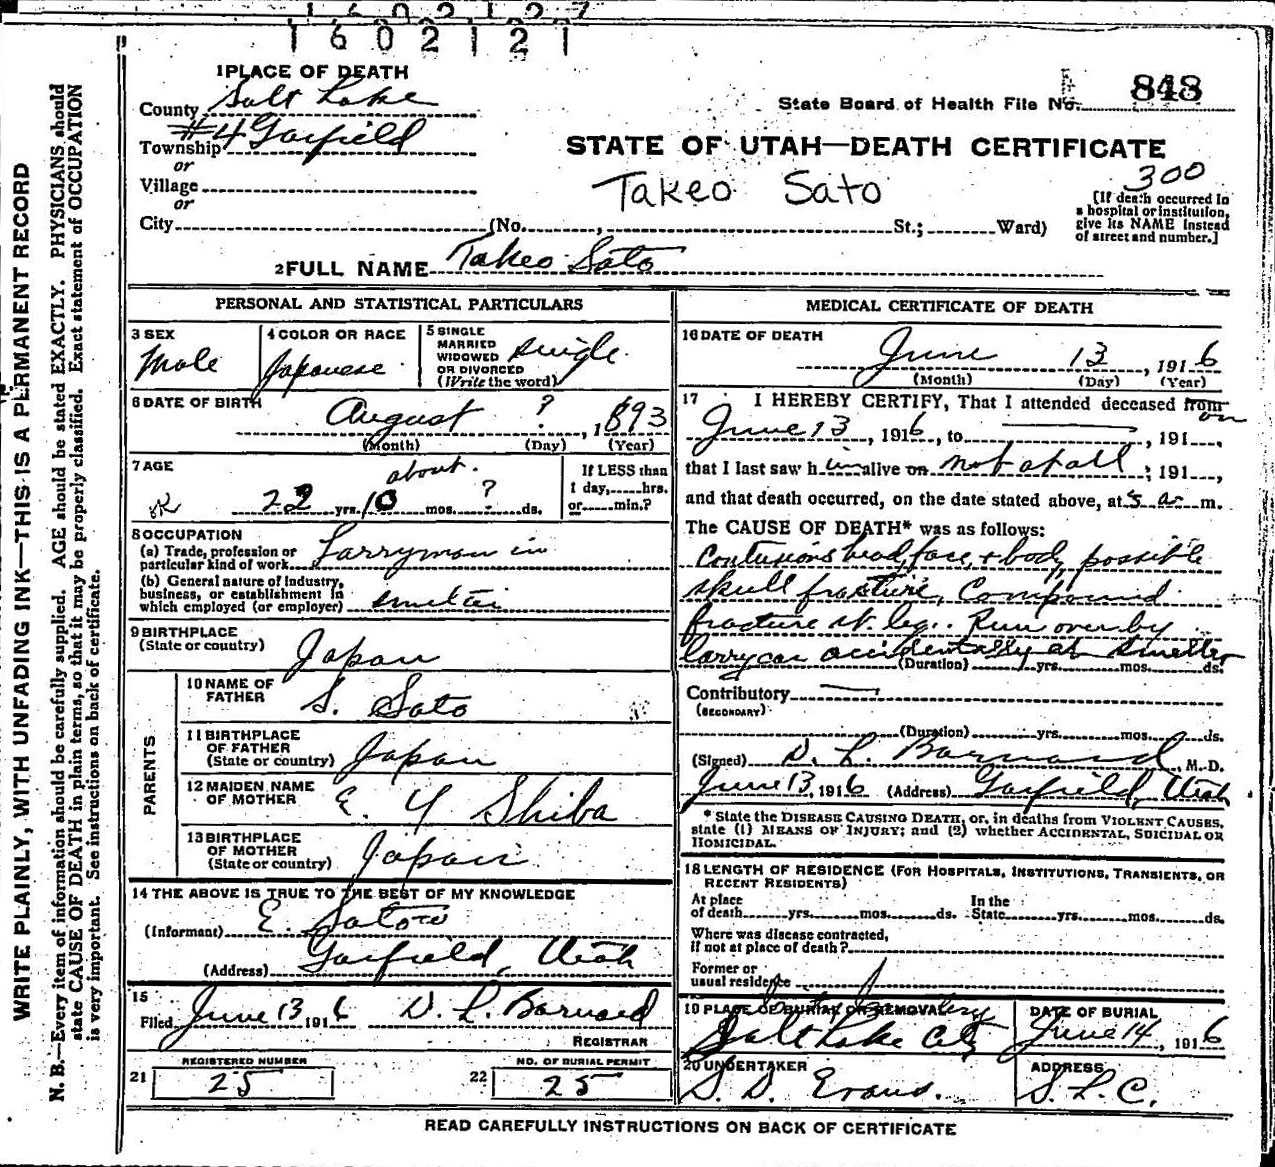 1602127
1602121
1 PLACE OF DEATH
County Salt Lake
Township #4 Garfield
or
Village
or
City (No. , St.; Ward)
State Board of Health File No. 848
STATE OF UTAH—DEATH CERTIFICATE
Takeo Sato
300
[If death occurred in a hospital or institution, give its NAME instead of street and number.]
2 FULL NAME Takeo Sato
PERSONAL AND STATISTICAL PARTICULARS
3 SEX
Male
4 COLOR OR RACE
Japanese
5 SINGLE
MARRIED
WIDOWED
OR DIVORCED
(Write the word)
Single
6 DATE OF BIRTH
August ? , 1893
(Month) (Day) (Year)
7 AGE
about
OK 22 yrs. 10 mos. ? ds.
If LESS than
1 day, hrs.
or min.?
8 OCCUPATION
(a) Trade, profession or
particular kind of work Larryman in
(b) General nature of industry,
business, or establishment in
which employed (or employer) smelter
9 BIRTHPLACE
(State or country)
Japan
PARENTS
10 NAME OF
FATHER
S. Sato
11 BIRTHPLACE
OF FATHER
(State or country) Japan
12 MAIDEN NAME
OF MOTHER E. Y Shiba
13 BIRTHPLACE
OF MOTHER
(State or country) Japan
14 THE ABOVE IS TRUE TO THE BEST OF MY KNOWLEDGE
(Informant) E. Satow
(Address) Garfield, Utah
15
Filed June 13 1916 D. L. Barnard
REGISTRAR
REGISTERED NUMBER
21 25
NO. OF BURIAL PERMIT
22 25
MEDICAL CERTIFICATE OF DEATH
16 DATE OF DEATH
June 13 , 1916
(Month) (Day) (Year)
17 I HEREBY CERTIFY, That I attended deceased from
on
June 13 , 1916, to , 191 ,
that I last saw h im alive on not at all ; 191 ,
and that death occurred, on the date stated above, at 5 a m.
The CAUSE OF DEATH* was as follows:
Contusions head, face, + body, possible
skull fracture, Compound
fracture rt. leg. Run over by
larrycar accidentally at smelter
(Duration) yrs. mos. ds.
Contributory
(SECONDARY)
(Duration) yrs. mos. ds.
(Signed) D. L. Barnard, M.D.
June 13, 1916 (Address) Garfield, Utah
* State the DISEASE CAUSING DEATH, or, in deaths from VIOLENT CAUSES,
state (1) MEANS OF INJURY; and (2) whether ACCIDENTAL, SUICIDAL OR
HOMICIDAL.
18 LENGTH OF RESIDENCE (FOR HOSPITALS, INSTITUTIONS, TRANSIENTS, OR
RECENT RESIDENTS)
At place
of death yrs. mos. ds.
In the
State yrs. mos. ds.
Where was disease contracted,
if not at place of death?
Former or
usual residence
19 PLACE OF BURIAL OR REMOVAL
Salt Lake City
DATE OF BURIAL
June 14 , 1916
20 UNDERTAKER
S. D. Evans.
ADDRESS
S. L. C.
READ CAREFULLY INSTRUCTIONS ON BACK OF CERTIFICATE
WRITE PLAINLY, WITH UNFADING INK—THIS IS A PERMANENT RECORD
N. B.—Every item of information should be carefully supplied. AGE should be stated EXACTLY. PHYSICIANS should
state CAUSE OF DEATH in plain terms, so that it may be properly classified. Exact statement of OCCUPATION
is very important. See instructions on back of certificate.